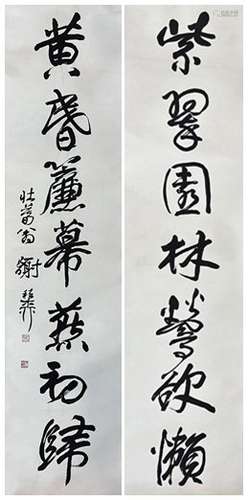 紫翠園林鶯欲懶
黃昏簾幕燕初歸
壯暮翁謝稚柳